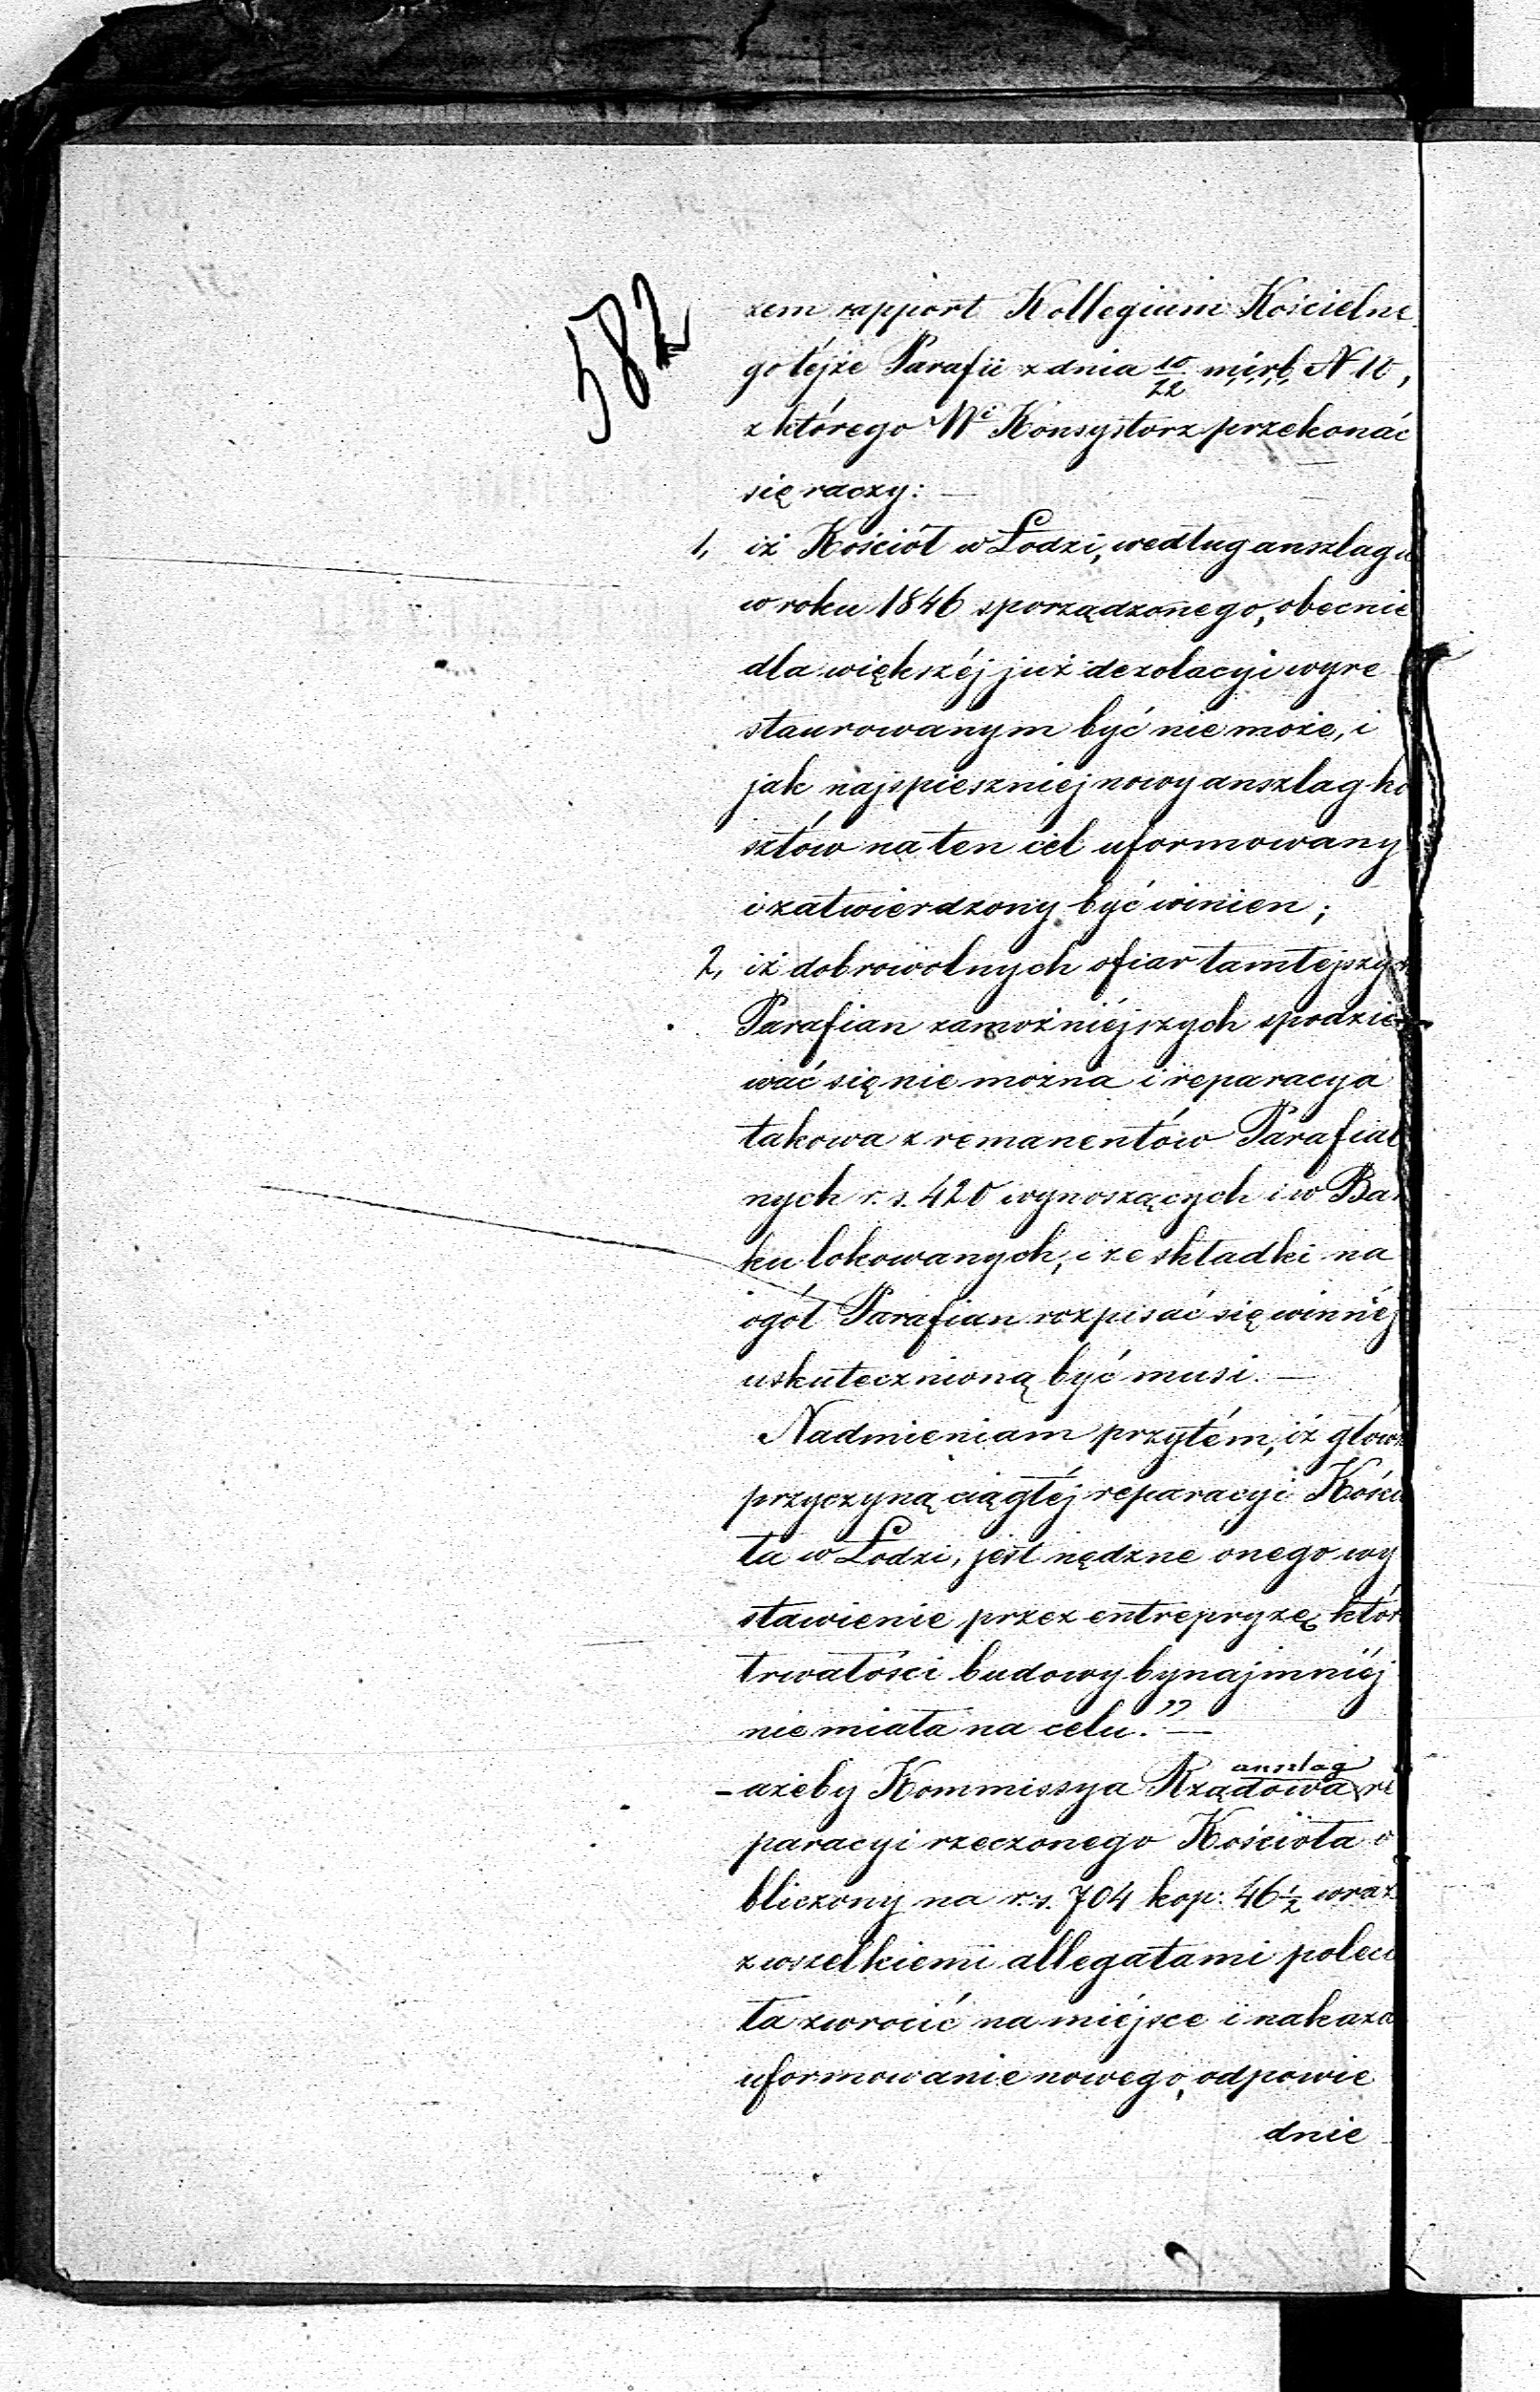 582
zem rapport Kollegium Kościelne
go téjże Parafii z dnia 10/22 m. i r. b. N 10,
z którego Wi Konsystorz przekonać
się raczy: —
1, iż Kościół w Łodzi, według anszlagu
w roku 1846 sporządzonego, obecnie
dla większéj już dezolacyi wyre
staurowanym być nie może, i
jak najspieszniej nowy anszlag ko
sztów na ten cel uformowany
i zatwierdzony być winien;
2, iż dobrowolnych ofiar tamtejszych
Parafian zamożniéjszych spodzie
wać się nie można i reparacya
takowa z remanentów Parafial
nych r. s. 420 wynoszących i w Ban
ku lokowanych, i ze składki na
ogół Parafian rozpisać się winnéj
uskutecznioną być musi. —
Nadmieniam przytém, iż główn
przyczyną ciągłéj reparacyi Kości
ła w Łodzi, jest nędzne onego wy
stawienie przez entrepryzę, któr
trwałości budowy bynajmniéj
nie miała na celu." —
anszlag
- ażeby Kommissya Rządowa re
paracyi rzeczonego Kościoła o
bliczony na r. s. 704 kop: 46 1/2 wraz
z wszelkiemi allegatami poleci
ła zwrocić na miéjsce i nakaza
uformowanie nowego, odpowie
dnie